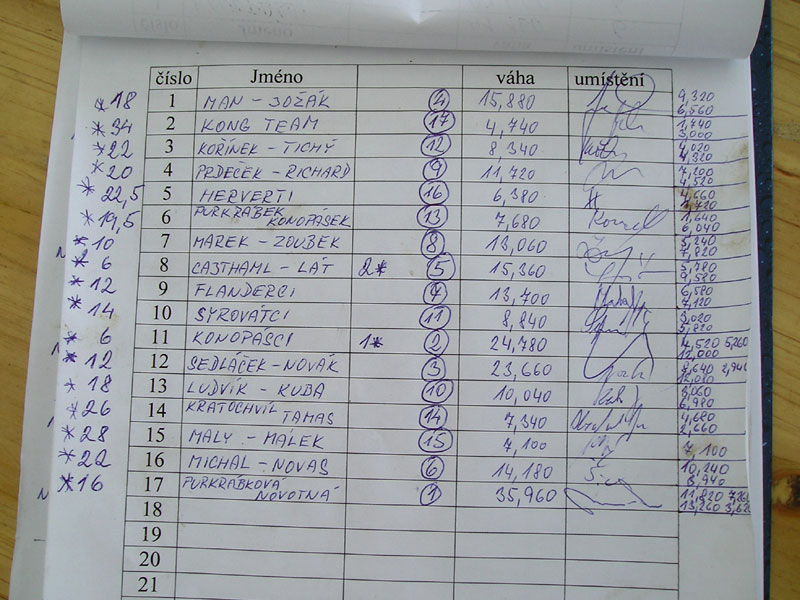 číslo Jméno váha umístění
*18 1 MAN - JOŽÁK 4 15,880 9,320 6,560
*34 2 KONG TEAM 17 4,740 1,740 3,000
*22 3 KOŘÍNEK - TICHÝ 12 8,340 4,020 4,320
*20 4 PRDEČEK - RICHARD 9 11,720 7,200 4,520
*22,5 5 HERVERTI 16 6,380 4,660 1,720
*19,5 6 PURKRÁBEK KONOPÁSEK 13 7,680 1,640 6,040
*10 7 MAREK - ZOUBEK 8 13,060 5,240 7,820
*6 8 CAJTHAML - LÁT 2* 5 15,360 5,780 9,580
*12 9 FLANDERCI 7 13,700 6,580 7,120
*14 10 SYROVÁTCI 11 8,840 3,020 5,820
*6 11 KONOPÁSCI 1* 2 24,780 4,520 5,260 12,000
*12 12 SEDLÁČEK - NOVÁK 3 23,660
*18 13 LUDVÍK - KUBA 10 10,040 3,060 6,980
*26 14 KRATOCHVÍL TAMAS 14 7,340 4,680 2,660
*28 15 MALY - MALEK 15 7,100 7,100
*22 16 MICHAL - NOVAS 6 14,180 10,240 3,940
*16 17 PURKRÁBKOVÁ NOVOTNÁ 1 35,960 11,820 13,260
18
19
20
21